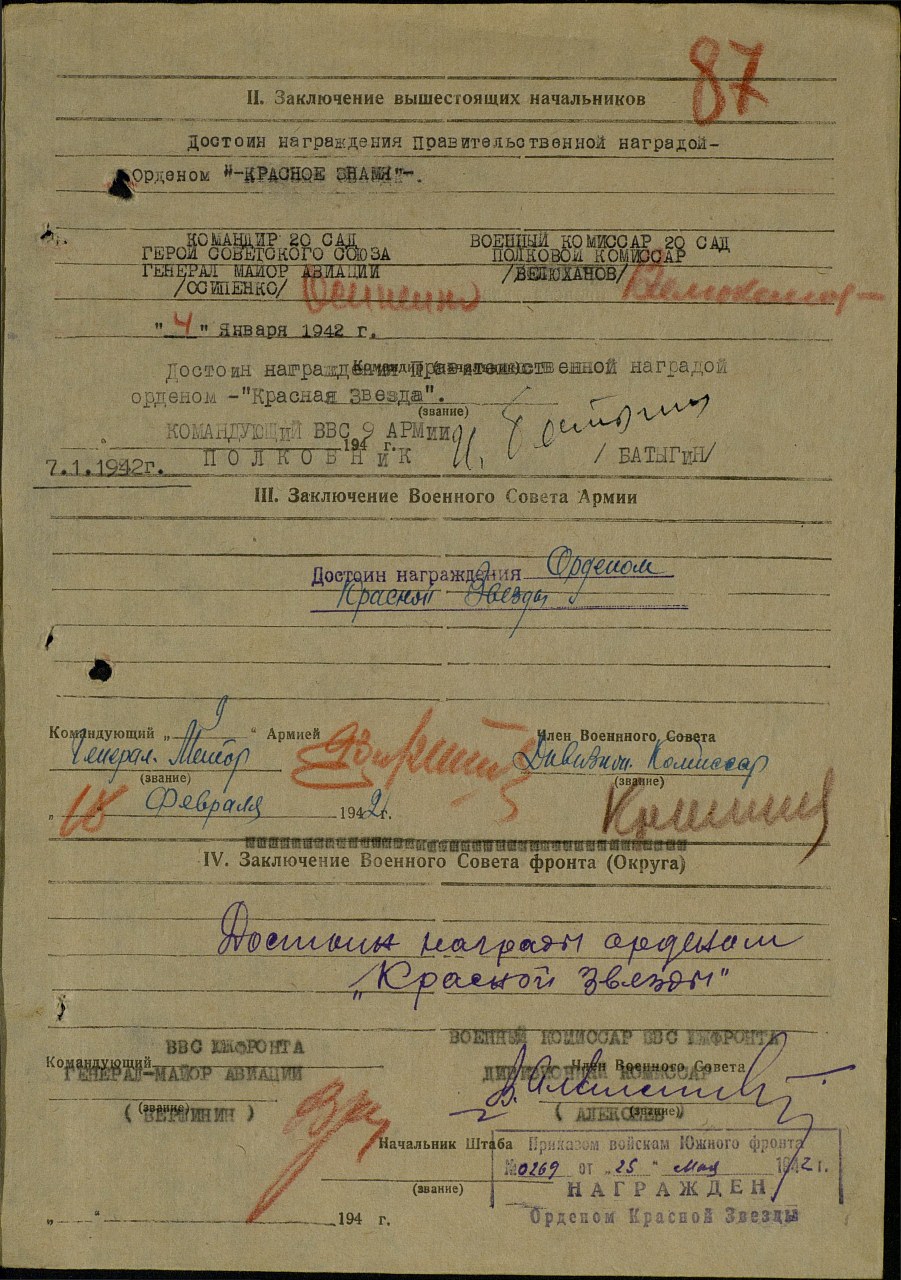 87
II. Заключение вышестоящих начальников
Достоин награждения Правительственной наградой-
Орденом "-КРАСНОЕ ЗНАМЯ"-.
КОМАНДИР 20 САД
ГЕРОЙ СОВЕТСКОГО СОЮЗА
ГЕНЕРАЛ МАЙОР АВИАЦИИ
/ОСИПЕНКО/ Осипенко
ВОЕННЫЙ КОМИССАР 20 САД
ПОЛКОВОЙ КОМИССАР
/ВЕЛЮХАНОВ/
"4" Января 1942 г.
Достоин награждения Правительственной наградой
орденом -"Красная Звезда".
(звание)
КОМАНДУЮЩИЙ ВВС 9 АРМИИ
194 г.
7.1.1942г. ПОЛКОВНИК /БАТЫГИН/
III. Заключение Военного Совета Армии
Достоин награждения Орденом
Красной Звезды
Командующий „ 9 “ Армией
Генерал. Майор
(звание)
„ 18 “ Февраля 1942 г.
Член Военнного Совета
Дивизион. Комиссар
(звание)
IV. Заключение Военного Совета фронта (Округа)
Достоин награды орденом
„Красной Звезды"
Командующий
ВВС ЮЖФРОНТА
ГЕНЕРАЛ-МАЙОР АВИАЦИИ
(звание)
( ВЕРШИНИН )
ВОЕННЫЙ КОМИССАР ВВС ЮЖФРОНТА
Член Военного Совета
ДИВИЗИОННЫЙ КОМИССАР
(звание)
( АЛЕКСЕЕВ )
Начальник Штаба
(звание)
„ “ 194 г.
Приказом войскам Южного фронта
№0269 от „25" мая 1942 г.
НАГРАЖДЕН
Орденом Красной Звезды